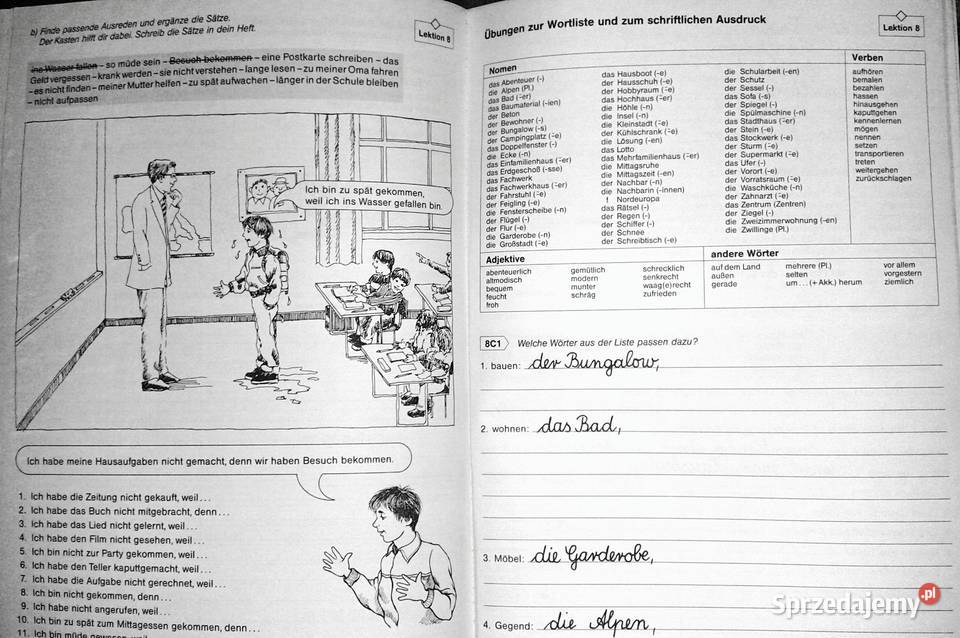 b) Finde passende Ausreden und ergänze die Sätze.
Der Kasten hilft dir dabei. Schreib die Sätze in dein Heft.
Lektion 8
ins Wasser fallen – so müde sein – Besuch bekommen – eine Postkarte schreiben – das
Geld vergessen – krank werden – sie nicht verstehen – lange lesen – zu meiner Oma fahren
– es nicht finden – meiner Mutter helfen – zu spät aufwachen – länger in der Schule bleiben
– nicht aufpassen
Ich bin zu spät gekommen,
weil ich ins Wasser gefallen bin.
Ich habe meine Hausaufgaben nicht gemacht, denn wir haben Besuch bekommen.
1. Ich habe die Zeitung nicht gekauft, weil . . .
2. Ich habe das Buch nicht mitgebracht, denn . . .
3. Ich habe das Lied nicht gelernt, weil . . .
4. Ich habe den Film nicht gesehen, weil . . .
5. Ich bin nicht zur Party gekommen, weil . . .
6. Ich habe den Teller kaputtgemacht, weil . . .
7. Ich habe die Aufgabe nicht gerechnet, weil . . .
8. Ich bin nicht gekommen, denn . . .
9. Ich habe nicht angerufen, weil . . .
10. Ich bin zu spät zum Mittagessen gekommen, denn . . .
11. Ich bin müde gewesen, weil
Übungen zur Wortliste und zum schriftlichen Ausdruck
Lektion 8
Nomen
das Abenteuer (-)
die Alpen (Pl.)
das Bad (¨er)
das Baumaterial (-ien)
der Beton
der Bewohner (-)
der Bungalow (-s)
der Campingplatz (¨e)
das Doppelfenster (-)
die Ecke (-n)
das Einfamilienhaus (¨er)
das Erdgeschoß (-sse)
das Fachwerk
das Fachwerkhaus (¨er)
der Fahrstuhl (¨e)
der Feigling (-e)
die Fensterscheibe (-n)
der Flügel (-)
der Flur (-e)
die Garderobe (-n)
die Großstadt (¨e)
das Hausboot (-e)
der Hausschuh (-e)
der Hobbyraum (¨e)
das Hochhaus (¨er)
die Höhle (-n)
die Insel (-n)
die Kleinstadt (¨e)
der Kühlschrank (¨e)
die Lösung (-en)
das Lotto
das Mehrfamilienhaus (¨er)
die Mittagsruhe
die Mittagszeit (-en)
der Nachbar (-n)
die Nachbarin (-innen)
! Nordeuropa
das Rätsel (-)
der Regen (-)
der Schiffer (-)
der Schnee
der Schreibtisch (-e)
die Schularbeit (-en)
der Schutz
der Sessel (-)
das Sofa (-s)
der Spiegel (-)
die Spülmaschine (-n)
das Stadthaus (¨er)
der Stein (-e)
das Stockwerk (-e)
der Sturm (¨e)
der Supermarkt (¨e)
das Ufer (-)
der Vorort (-e)
der Vorratsraum (¨e)
die Waschküche (-n)
der Zahnarzt (¨e)
das Zentrum (Zentren)
der Ziegel (-)
die Zweizimmerwohnung (-en)
die Zwillinge (Pl.)
Verben
aufhören
bemalen
bezahlen
hassen
hinausgehen
kaputtgehen
kennenlernen
mögen
nennen
setzen
transportieren
treten
weitergehen
zurückschlagen
Adjektive
abenteuerlich
altmodisch
bequem
feucht
froh
gemütlich
modern
munter
schräg
schrecklich
senkrecht
waag(e)recht
zufrieden
andere Wörter
auf dem Land
außen
gerade
mehrere (Pl.)
selten
um . . . (+ Akk.) herum
vor allem
vorgestern
ziemlich
8C1 Welche Wörter aus der Liste passen dazu?
1. bauen: der Bungalow,
2. wohnen: das Bad,
3. Möbel: die Garderobe,
4. Gegend: die Alpen,
Sprzedajemy.pl